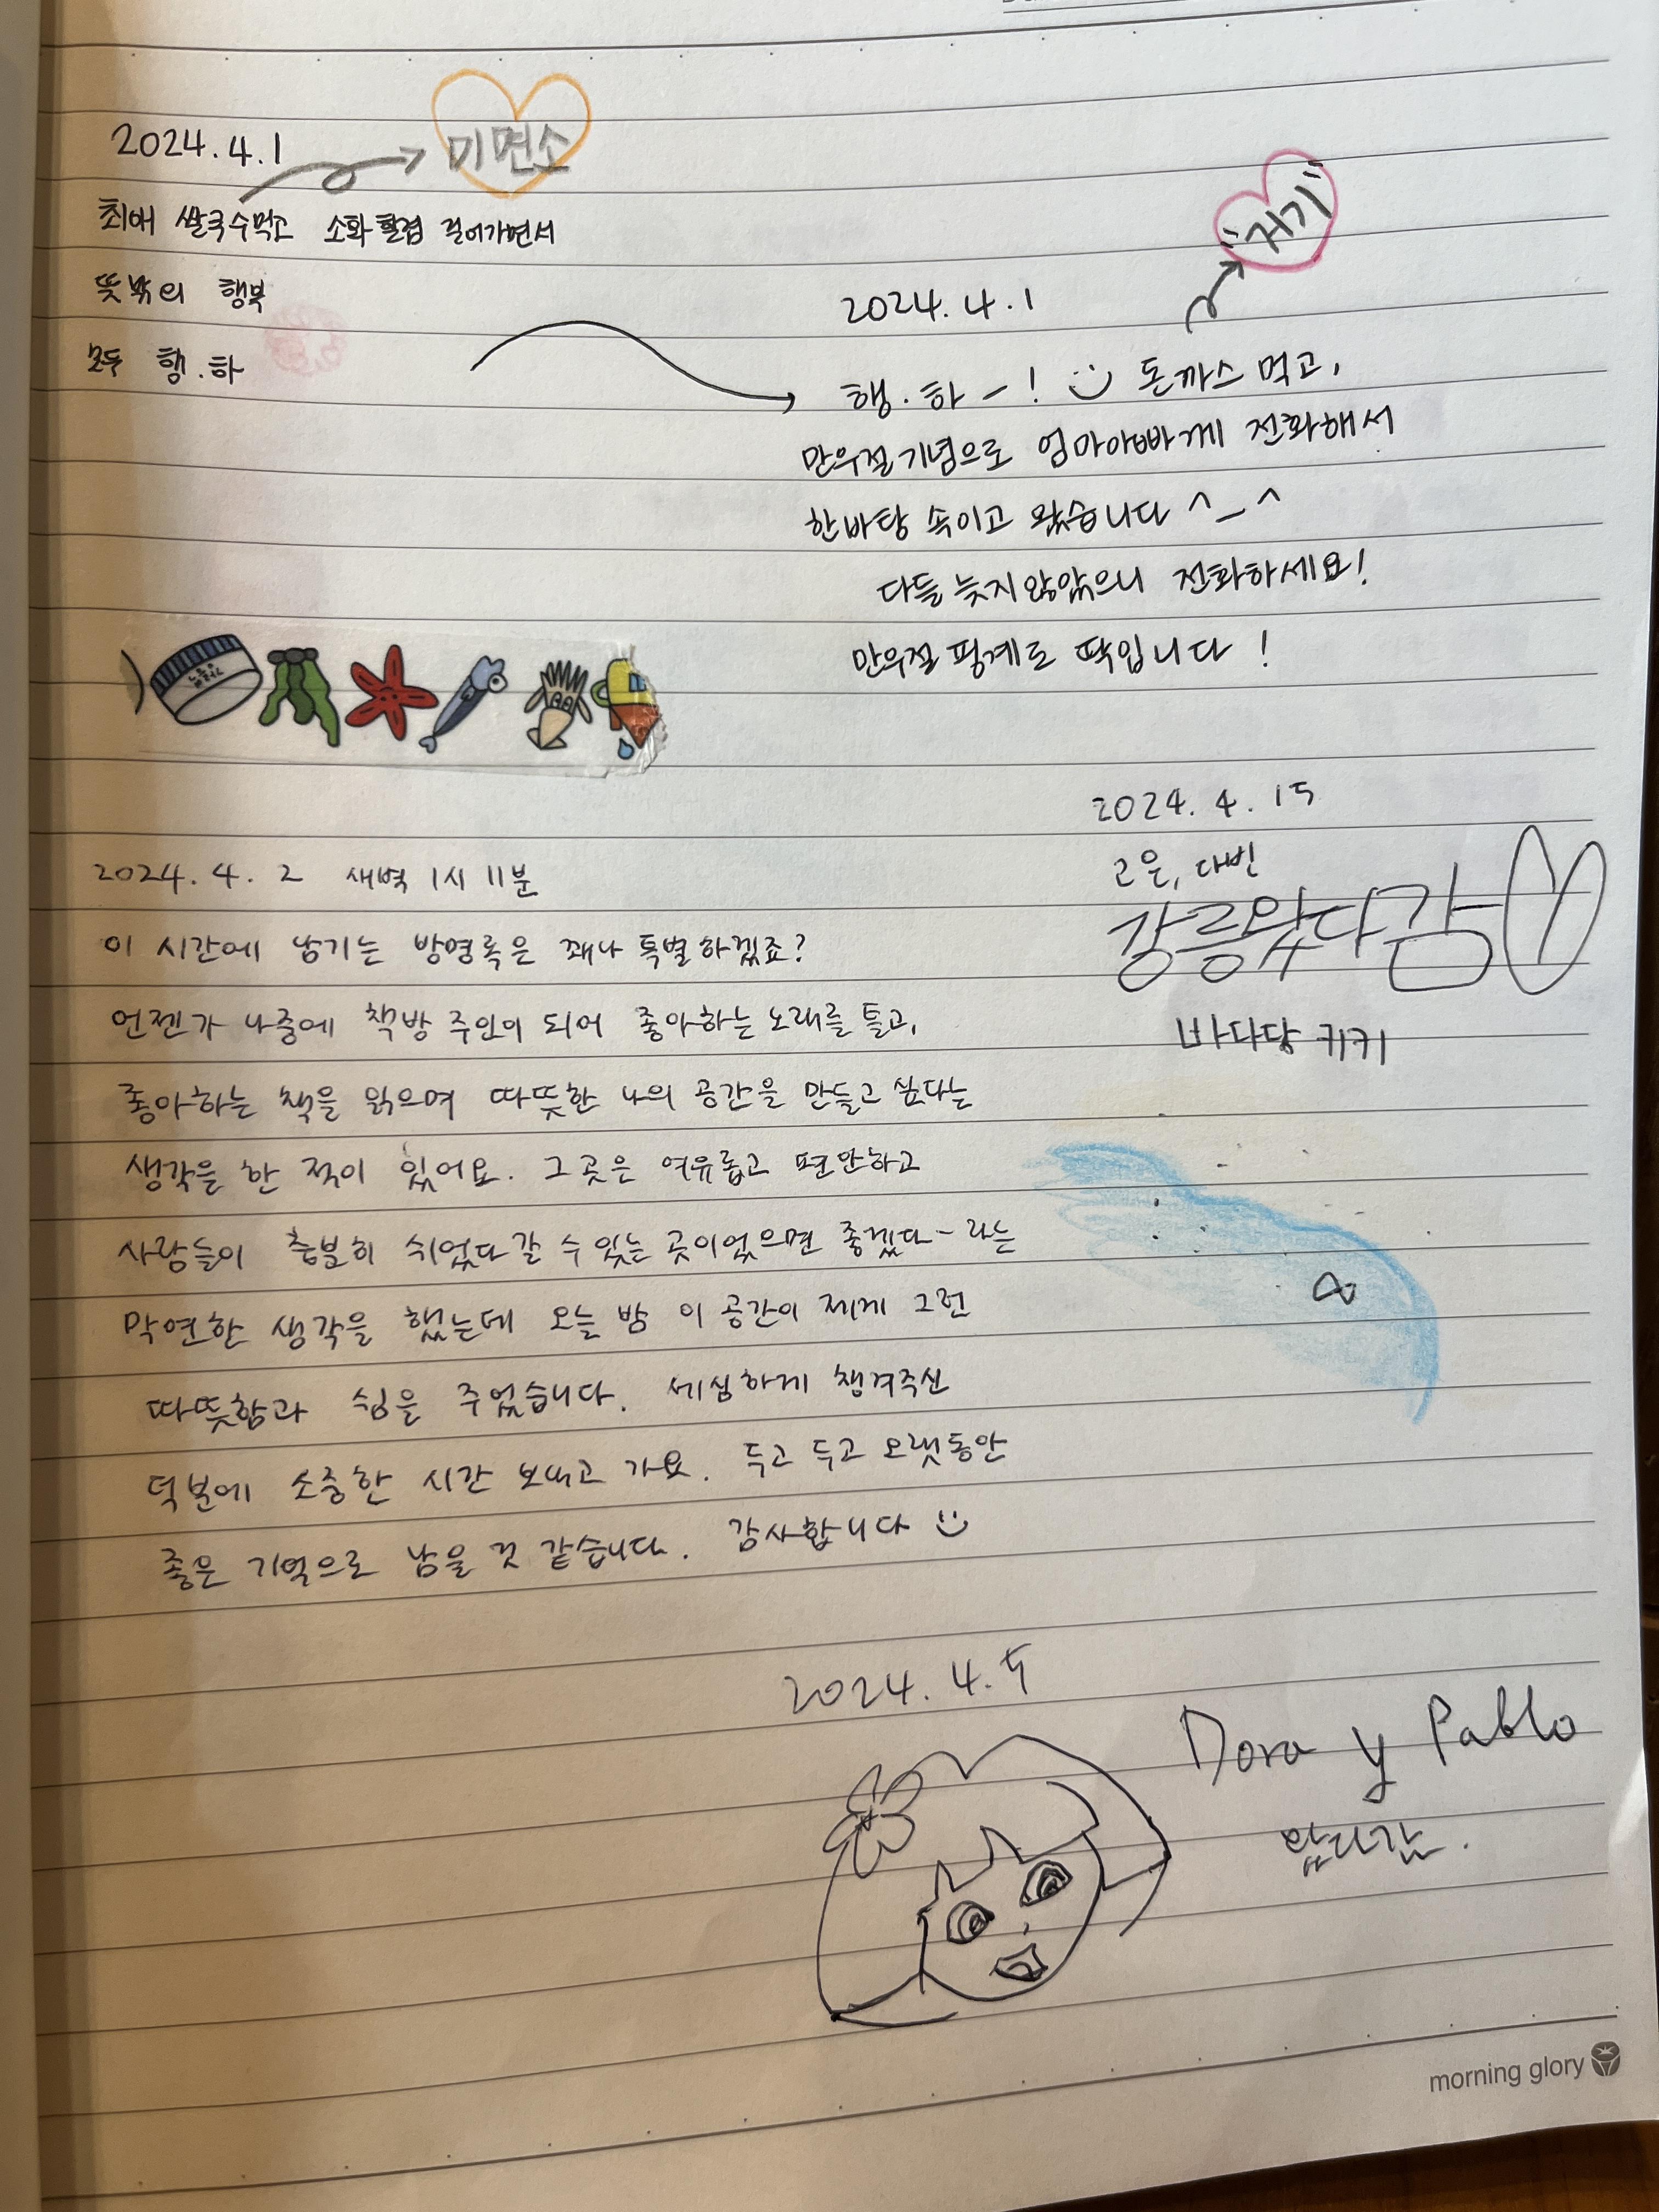 2024.4.1
미면소
최애 쌀국수먹고 소화할겸 걸어가면서
뜻밖의 행복
모두 행.하
저기
2024.4.1
행.하-! 돈까스 먹고,
만우절기념으로 엄마아빠께 전화해서
한바탕 속이고 왔습니다 ^_^
다들 늦지않았으니 전화하세요!
만우절 핑계로 딱입니다!
2024.4.15
고은, 다빈
강릉왔다감
바다당 키키
2024.4.2 새벽 1시 11분
이 시간에 남기는 방명록은 꽤나 특별하겠죠?
언젠가 나중에 책방 주인이 되어 좋아하는 노래를 틀고,
좋아하는 책을 읽으며 따뜻한 나의 공간을 만들고 싶다는
생각을 한 적이 있어요. 그 곳은 여유롭고 편안하고
사람들이 충분히 쉬었다 갈 수 있는 곳이었으면 좋겠다-라는
막연한 생각을 했는데 오늘 밤 이 공간이 제게 그런
따뜻함과 쉼을 주었습니다. 세심하게 챙겨주신
덕분에 소중한 시간 보내고 가요. 두고 두고 오랫동안
좋은 기억으로 남을 것 같습니다. 감사합니다
2024.4.5
Dora y Pablo
왔다감.
morning glory